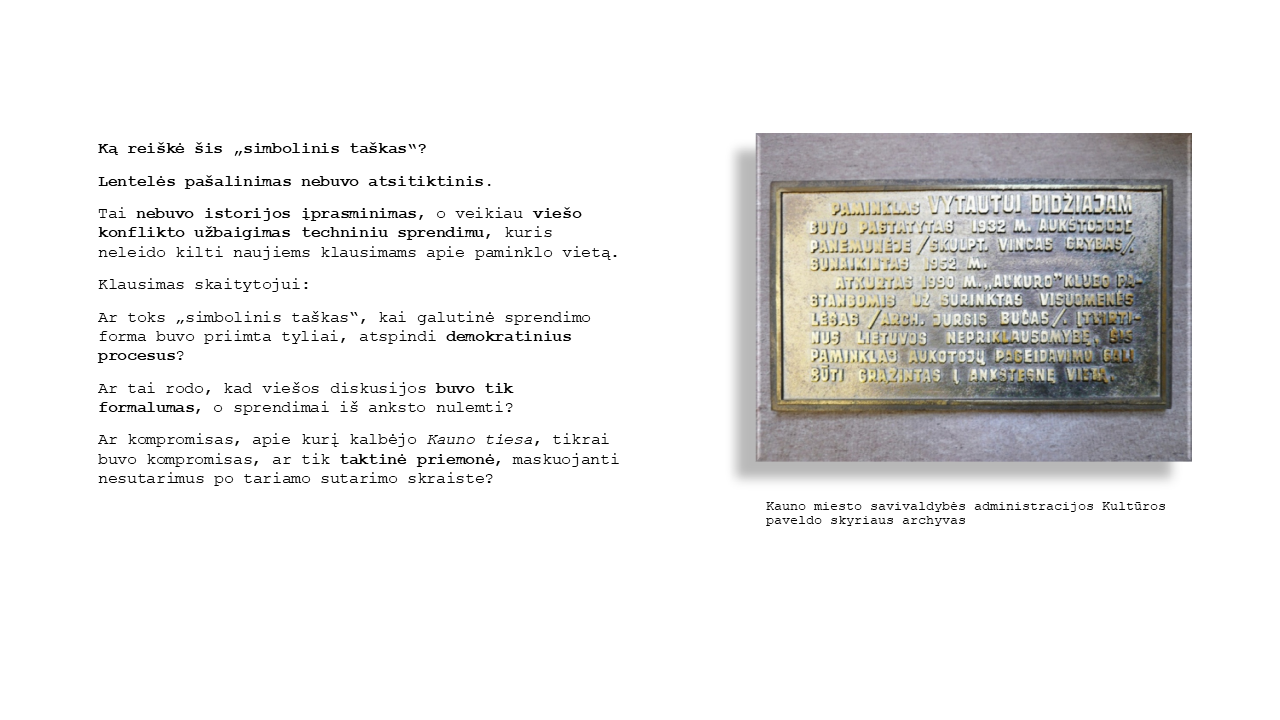 Ką reiškė šis „simbolinis taškas“?
Lentelės pašalinimas nebuvo atsitiktinis.
Tai nebuvo istorijos įprasminimas, o veikiau viešo
konflikto užbaigimas techniniu sprendimu, kuris
neleido kilti naujiems klausimams apie paminklo vietą.
Klausimas skaitytojui:
Ar toks „simbolinis taškas“, kai galutinė sprendimo
forma buvo priimta tyliai, atspindi demokratinius
procesus?
Ar tai rodo, kad viešos diskusijos buvo tik
formalumas, o sprendimai iš anksto nulemti?
Ar kompromisas, apie kurį kalbėjo Kauno tiesa, tikrai
buvo kompromisas, ar tik taktinė priemonė, maskuojanti
nesutarimus po tariamo sutarimo skraiste?
PAMINKLAS VYTAUTUI DIDŽIAJAM
BUVO PASTATYTAS 1932 M. AUKŠTOJOJE
PANEMUNĖJE /SKULPT. VINCAS GRYBAS/.
SUNAIKINTAS 1952 M.
ATKURTAS 1990 M. „AUKURO" KLUBO PA-
STANGOMIS UŽ SURINKTAS VISUOMENĖS
LĖŠAS /ARCH. JURGIS BUČAS/. ĮTVIRTI-
NUS LIETUVOS NEPRIKLAUSOMYBĘ, ŠIS
PAMINKLAS AUKOTOJŲ PAGEIDAVIMU GALI
BŪTI GRĄŽINTAS Į ANKSTESNĘ VIETĄ.
Kauno miesto savivaldybės administracijos Kultūros
paveldo skyriaus archyvas